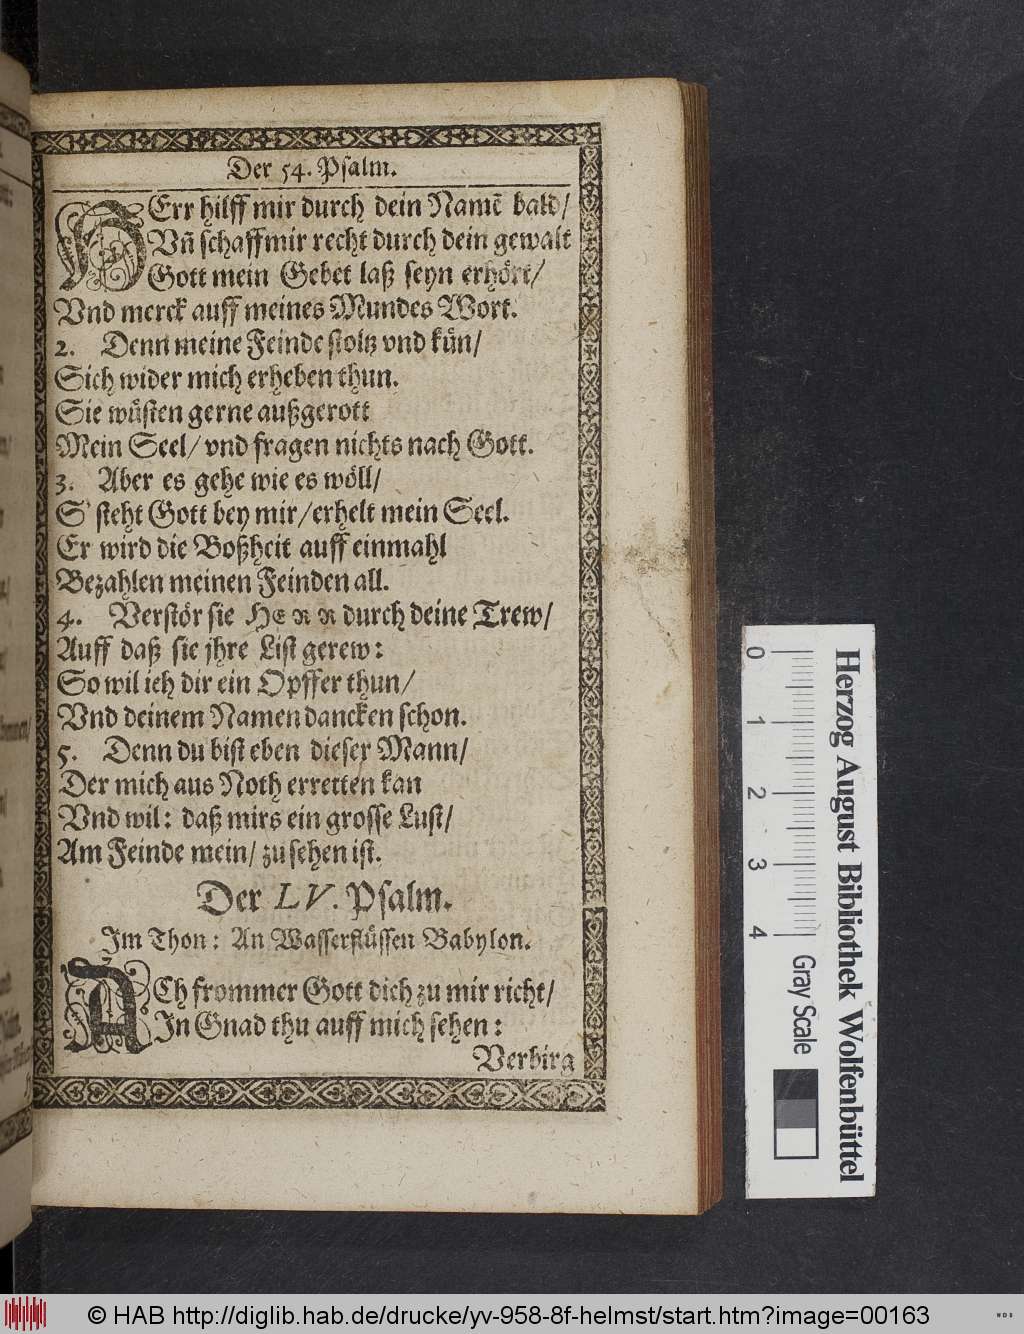 Der 54. Psalm.
HErr hilff mir durch dein Namẽ bald/
Vñ schaff mir recht durch dein gewalt
Gott mein Gebet laß seyn erhört/
Vnd merck auff meines Mundes Wort.
2. Denn meine Feinde stoltz vnd kün/
Sich wider mich erheben thun.
Sie wüsten gerne außgerott
Mein Seel/ vnd fragen nichts nach Gott.
3. Aber es gehe wie es wöll/
S' steht Gott bey mir/ erhelt mein Seel.
Er wird die Boßheit auff einmahl
Bezahlen meinen Feinden all.
4. Verstör sie HERR durch deine Trew/
Auff daß sie jhre List gerew:
So wil ich dir ein Opffer thun/
Vnd deinem Namen dancken schon.
5. Denn du bist eben dieser Mann/
Der mich aus Noth erretten kan
Vnd wil: daß mirs ein grosse Lust/
Am Feinde mein/ zu sehen ist.
Der LV. Psalm.
Im Thon: An Wasserflüssen Babylon.
ACh frommer Gott dich zu mir richt/
In Gnad thu auff mich sehen:
Verbirg
0 1 2 3 4
Herzog August Bibliothek Wolfenbüttel
Gray Scale
© HAB http://diglib.hab.de/drucke/yv-958-8f-helmst/start.htm?image=00163
WDB